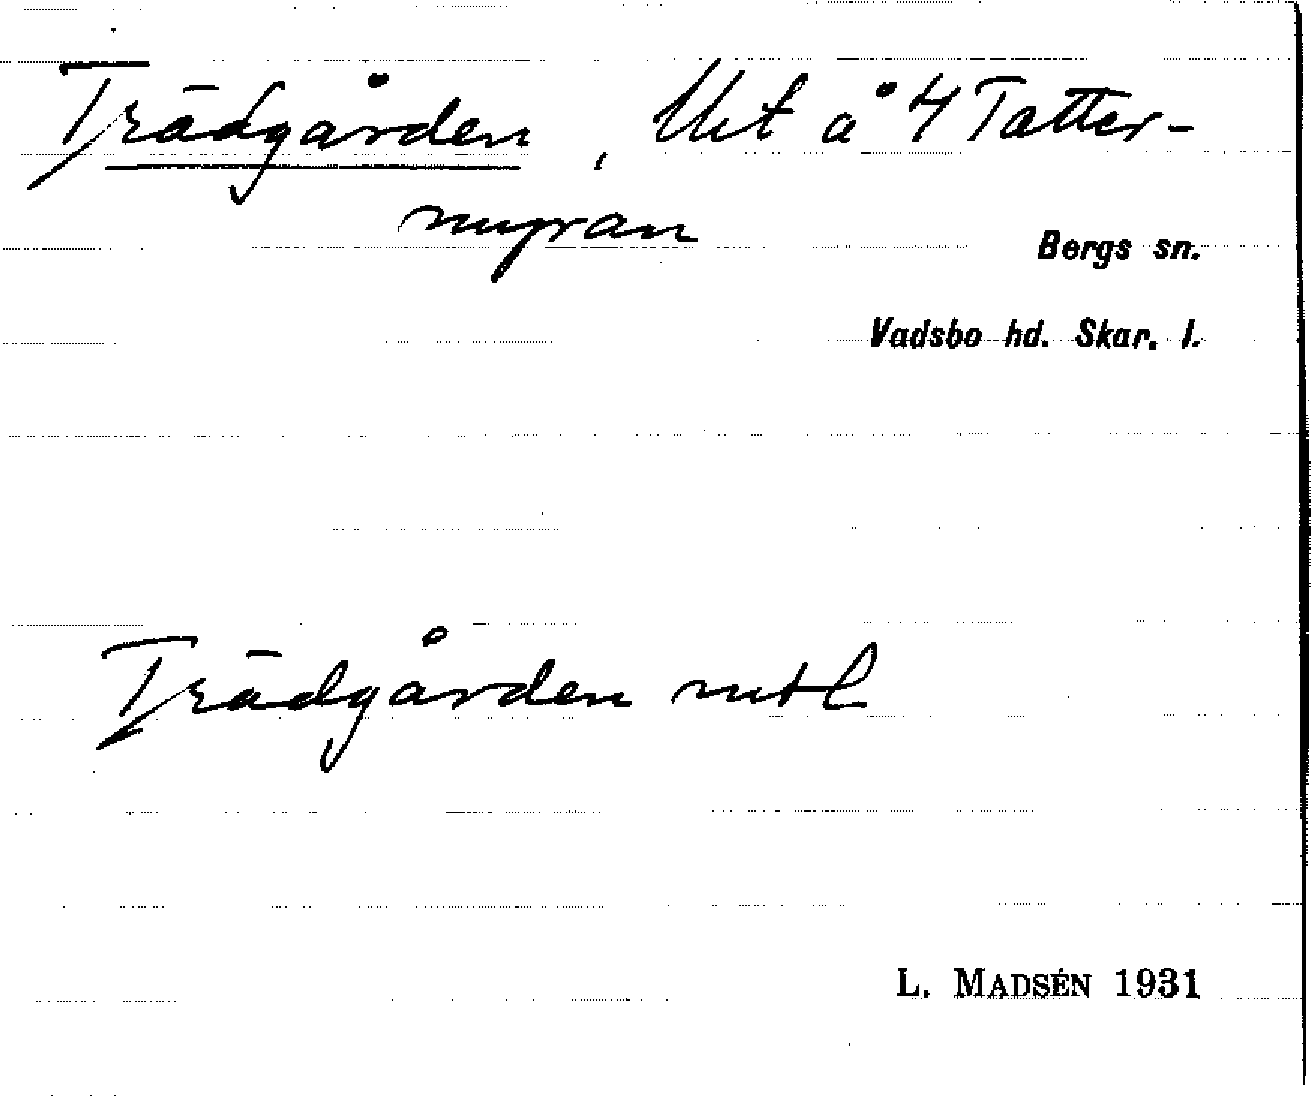 Trädgården, Utt å 4 Tatter-
myran
Bergs sn.
Vadsbo hd. Skar. l.
Trädgården mtl
L. MADSÉN 1931